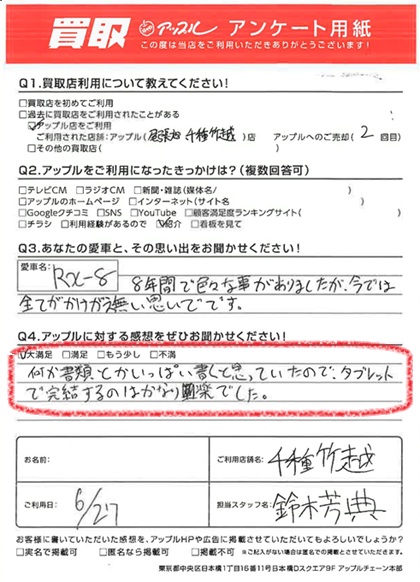 買取 アップル アンケート用紙
この度は当店をご利用いただきありがとうございます!
Q1.買取店利用について教えてください!
□買取店を初めてご利用
□過去に買取店をご利用されたことがある
☑アップル店をご利用
ご利用された店舗:アップル( 千種竹越 )店 アップルへのご売却( 2 回目)
□その他の買取店( )
Q2.アップルをご利用になったきっかけは?(複数回答可)
□テレビCM □ラジオCM □新聞・雑誌(媒体名/ )
□アップルのホームページ □インターネット(サイト名 )
□Googleクチコミ □SNS □YouTube □顧客満足度ランキングサイト( )
□チラシ □利用経験があるので ☑紹介 □看板を見て
Q3.あなたの愛車と、その思い出をお聞かせください!
愛車名: RX-8 8年間で色々な事がありましたが、今では
全てがかけが無い思いでです。
Q4.アップルに対する感想をぜひお聞かせください!
☑大満足 □満足 □もう少し □不満
何か書類とかいっぱい書くと思っていたので、タブレット
で完結するのはかなり楽でした。
お名前: ご利用店舗名: 千種竹越
ご利用日: 6/27 担当スタッフ名: 鈴木芳典
お客様に書いていただいた感想を、アップルHPや広告に掲載させていただいてもよろしいでしょうか?
□実名で掲載可 □匿名なら掲載可 □掲載不可 ※ご記入がない場合は匿名での掲載とさせていただきます。
東京都中央区日本橋1丁目16番11号日本橋Dスクエア9F アップルチェーン本部